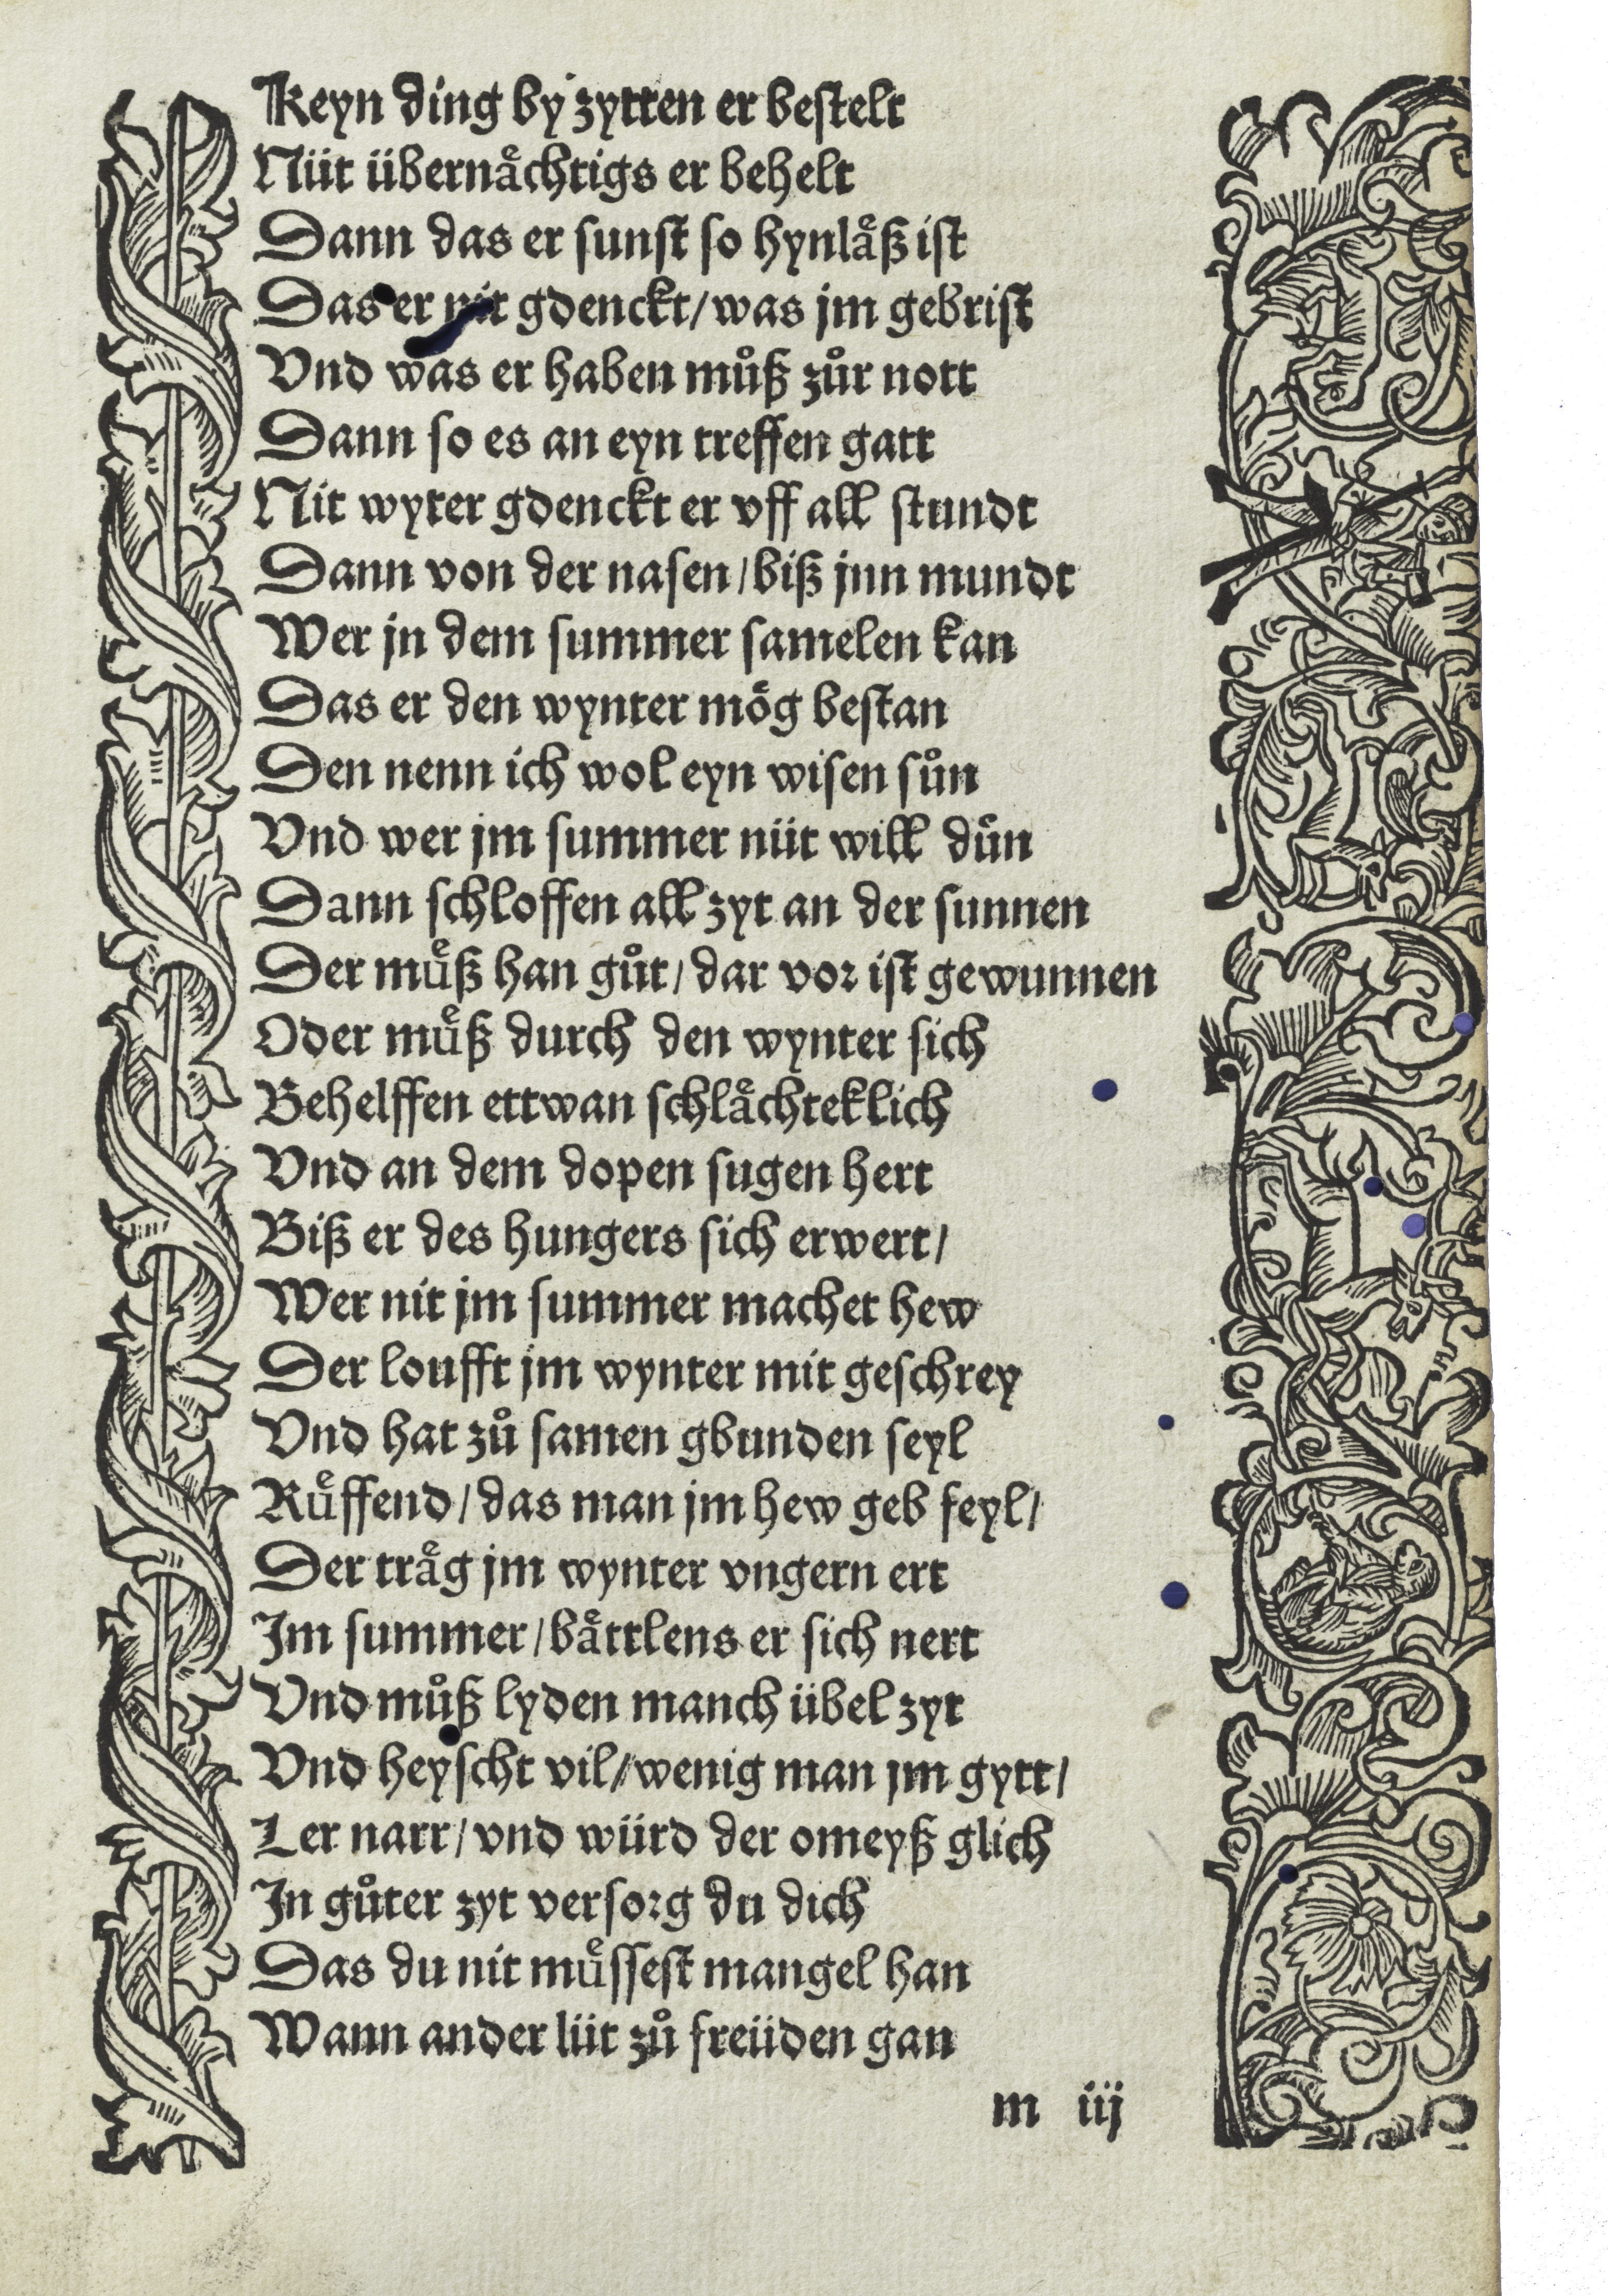 Keyn ding by zytten er bestelt
Nüt übernaͤchtigs er behelt
Dann das er sunst so hynlaͤß ist
Das er nit gdenckt/was jm gebrist
Vnd was er haben muͦß zuͦr nott
Dann so es an eyn treffen gatt
Nit wyter gdenckt er vff all stundt
Dann von der nasen/biß jnn mundt
Wer jn dem summer samelen kan
Das er den wynter moͤg bestan
Den nenn ich wol eyn wisen suͦn
Vnd wer jm summer nüt will duͦn
Dann schloffen all zyt an der sunnen
Der muͤß han guͦt/dar vor ist gewunnen
Oder muͤß durch den wynter sich
Behelffen ettwan schlaͤchteklich
Vnd an dem dopen sugen hert
Biß er des hungers sich erwert/
Wer nit jm summer machet hew
Der loufft jm wynter mit geschrey
Vnd hat zuͦ samen gbunden seyl
Ruͤffend/das man jm hew geb feyl/
Der traͤg jm wynter vngern ert
Im summer/baͤttlens er sich nert
Vnd muͦß lyden manch übel zyt
Vnd heyscht vil/wenig man jm gytt/
Ler narr/vnd würd der omeyß glich
In guͦter zyt versorg du dich
Das du nit muͤssest mangel han
Wann ander lüt zuͦ freüden gan
m iij